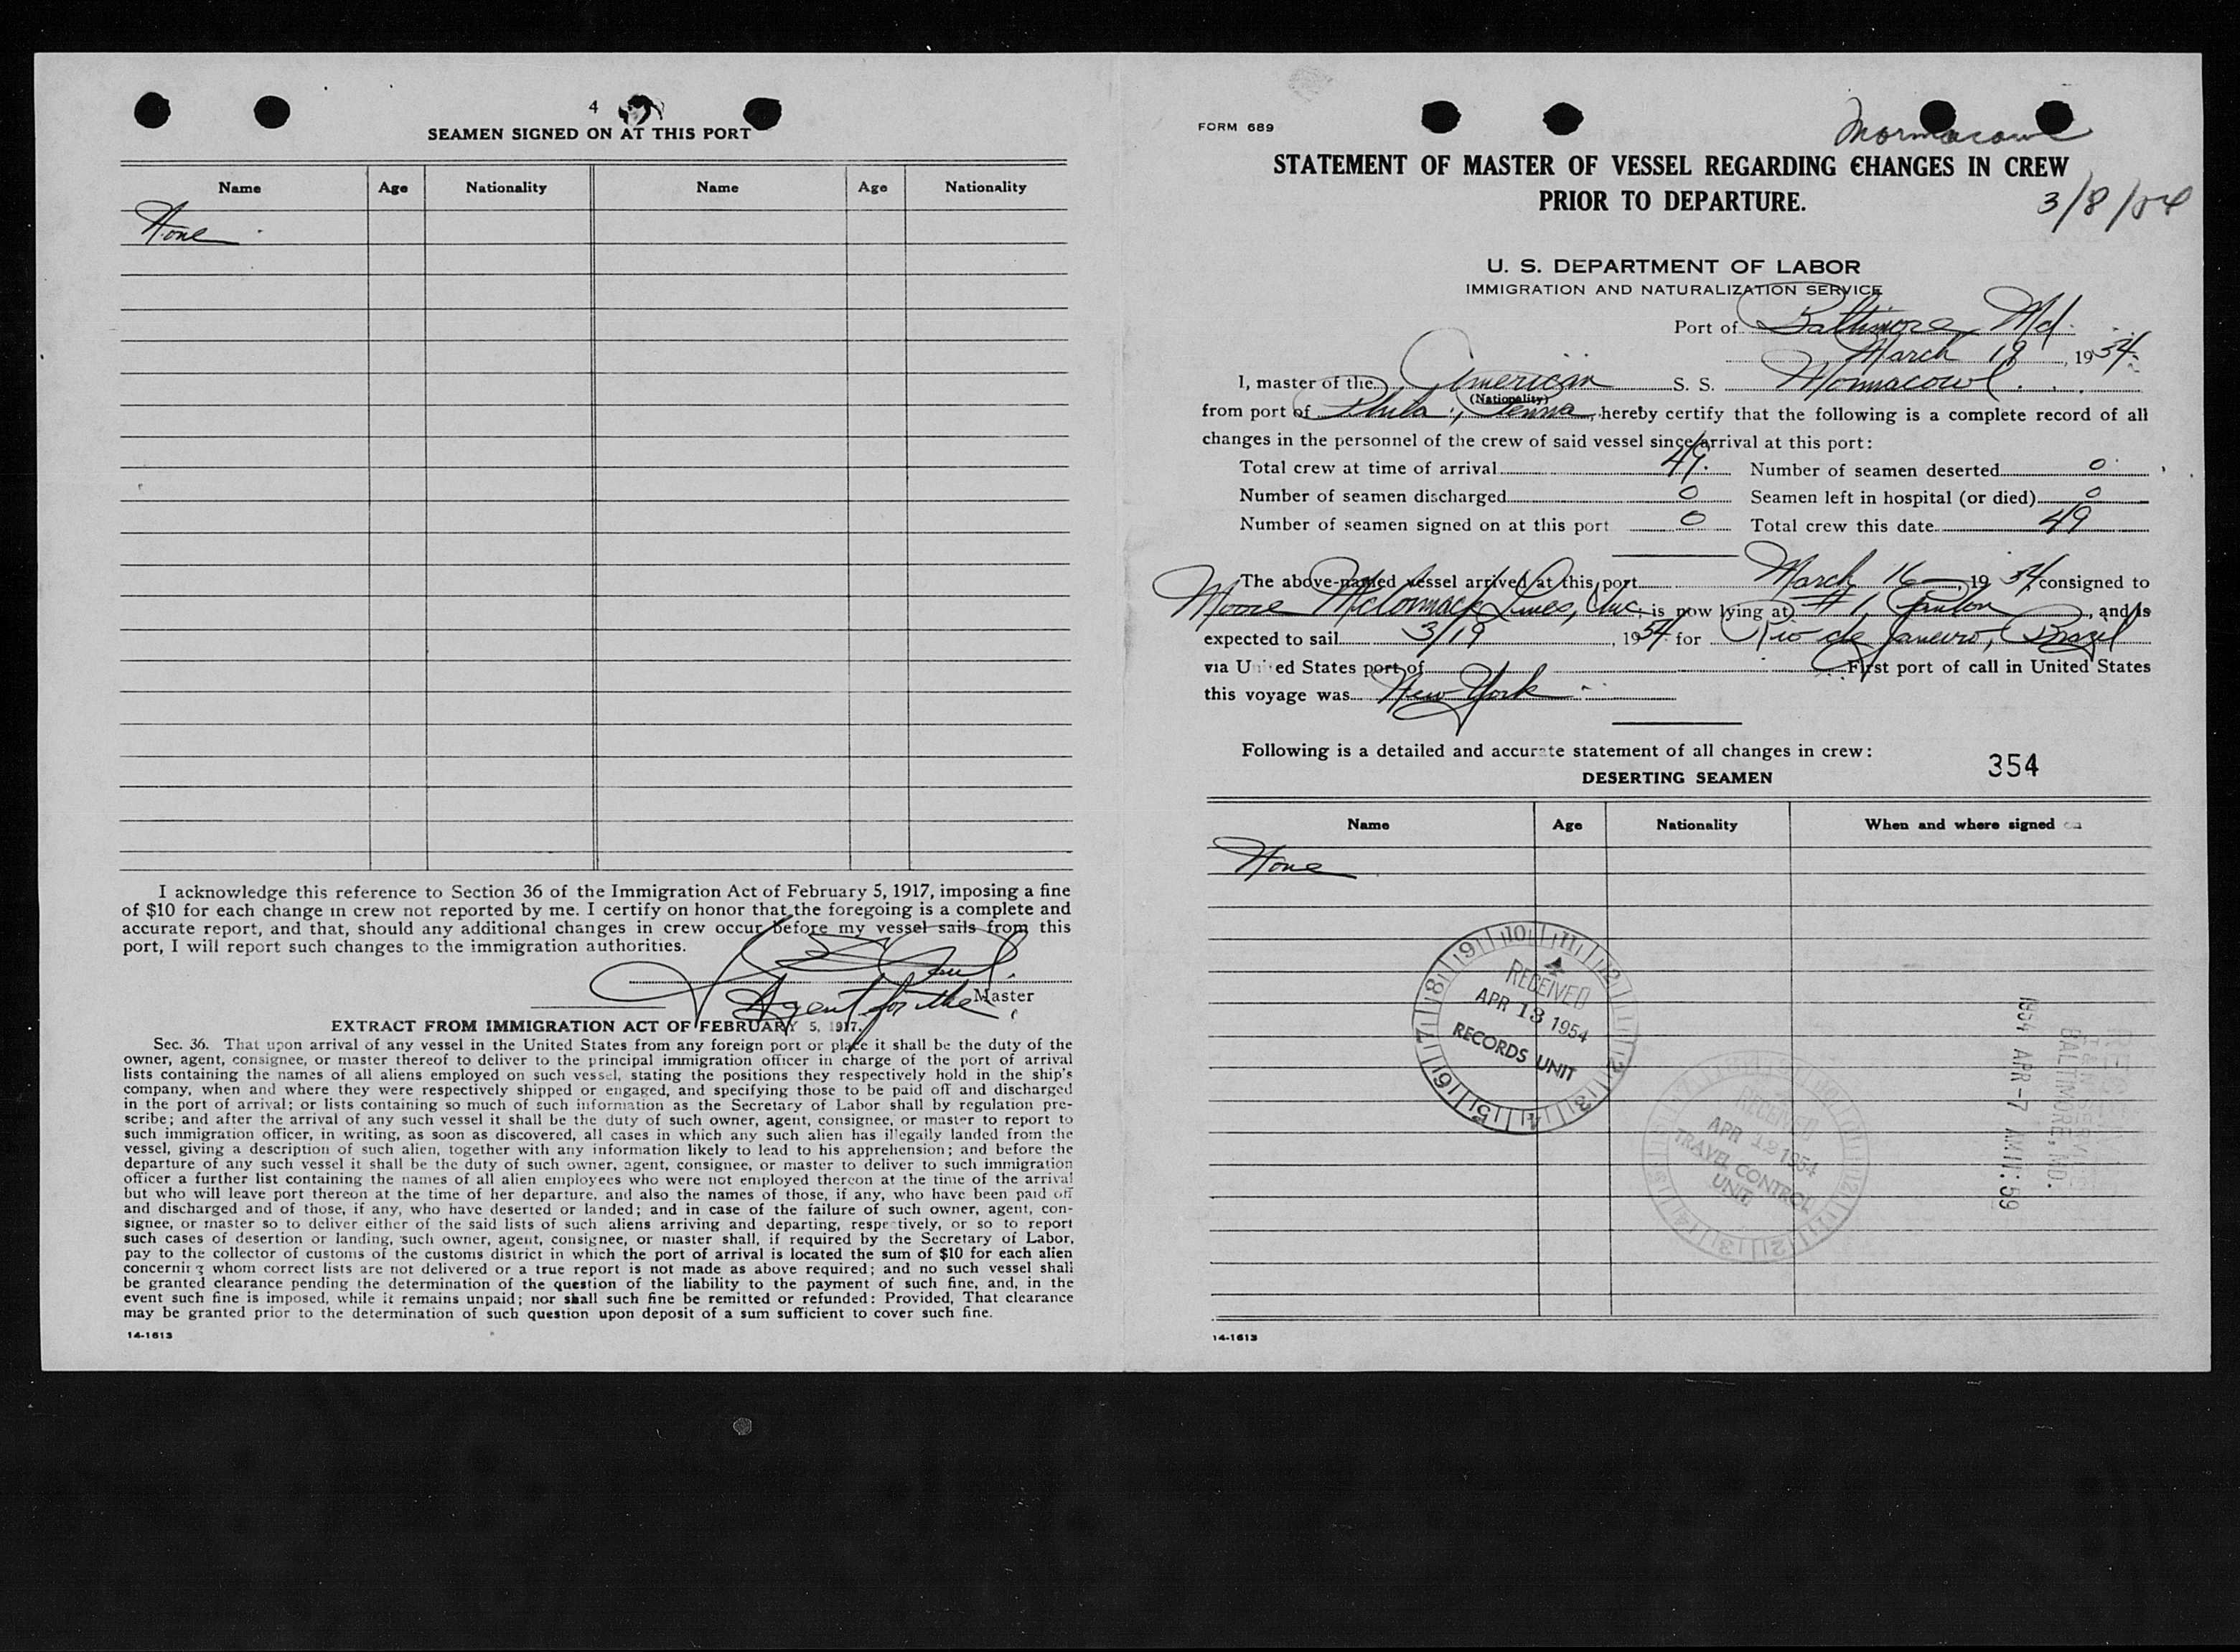 4
SEAMEN SIGNED ON AT THIS PORT
Name Age Nationality Name Age Nationality
None
I acknowledge this reference to Section 36 of the Immigration Act of February 5, 1917, imposing a fine
of $10 for each change in crew not reported by me. I certify on honor that the foregoing is a complete and
accurate report, and that, should any additional changes in crew occur before my vessel sails from this
port, I will report such changes to the immigration authorities.
Agent for the Master
EXTRACT FROM IMMIGRATION ACT OF FEBRUARY 5, 1917.
Sec. 36. That upon arrival of any vessel in the United States from any foreign port or place it shall be the duty of the
owner, agent, consignee, or master thereof to deliver to the principal immigration officer in charge of the port of arrival
lists containing the names of all aliens employed on such vessel, stating the positions they respectively hold in the ship's
company, when and where they were respectively shipped or engaged, and specifying those to be paid off and discharged
in the port of arrival; or lists containing so much of such information as the Secretary of Labor shall by regulation pre-
scribe; and after the arrival of any such vessel it shall be the duty of such owner, agent, consignee, or master to report to
such immigration officer, in writing, as soon as discovered, all cases in which any such alien has illegally landed from the
vessel, giving a description of such alien, together with any information likely to lead to his apprehension; and before the
departure of any such vessel it shall be the duty of such owner, agent, consignee, or master to deliver to such immigration
officer a further list containing the names of all alien employees who were not employed thereon at the time of the arrival
but who will leave port thereon at the time of her departure, and also the names of those, if any, who have been paid off
and discharged and of those, if any, who have deserted or landed; and in case of the failure of such owner, agent, con-
signee, or master so to deliver either of the said lists of such aliens arriving and departing, respectively, or so to report
such cases of desertion or landing, such owner, agent, consignee, or master shall, if required by the Secretary of Labor,
pay to the collector of customs of the customs district in which the port of arrival is located the sum of $10 for each alien
concerning whom correct lists are not delivered or a true report is not made as above required; and no such vessel shall
be granted clearance pending the determination of the question of the liability to the payment of such fine, and, in the
event such fine is imposed, while it remains unpaid; nor shall such fine be remitted or refunded: Provided, That clearance
may be granted prior to the determination of such question upon deposit of a sum sufficient to cover such fine.
14-1613
FORM 689
Mormacowl
STATEMENT OF MASTER OF VESSEL REGARDING CHANGES IN CREW
PRIOR TO DEPARTURE.
3/8/54
U. S. DEPARTMENT OF LABOR
IMMIGRATION AND NATURALIZATION SERVICE
Port of Baltimore, Md.
March 19, 1954.
I, master of the American S. S. Mormacowl
(Nationality)
from port of Phila., Penna, hereby certify that the following is a complete record of all
changes in the personnel of the crew of said vessel since arrival at this port:
Total crew at time of arrival 49. Number of seamen deserted 0
Number of seamen discharged 0 Seamen left in hospital (or died) 0
Number of seamen signed on at this port 0 Total crew this date 49
The above-named vessel arrived at this port March 16, 1954 consigned to
Moore McCormack Lines, Inc., is now lying at #1, Canton, and is
expected to sail 3/19, 1954 for Rio de Janeiro, Brazil
via United States port of First port of call in United States
this voyage was New York
Following is a detailed and accurate statement of all changes in crew:
354
DESERTING SEAMEN
Name Age Nationality When and where signed on
None
RECEIVED
APR 13 1954
RECORDS UNIT
RECEIVED
APR 12 1954
TRAVEL CONTROL
UNIT
BALTIMORE, MD.
1954 APR-7 AM 11:59
14-1613